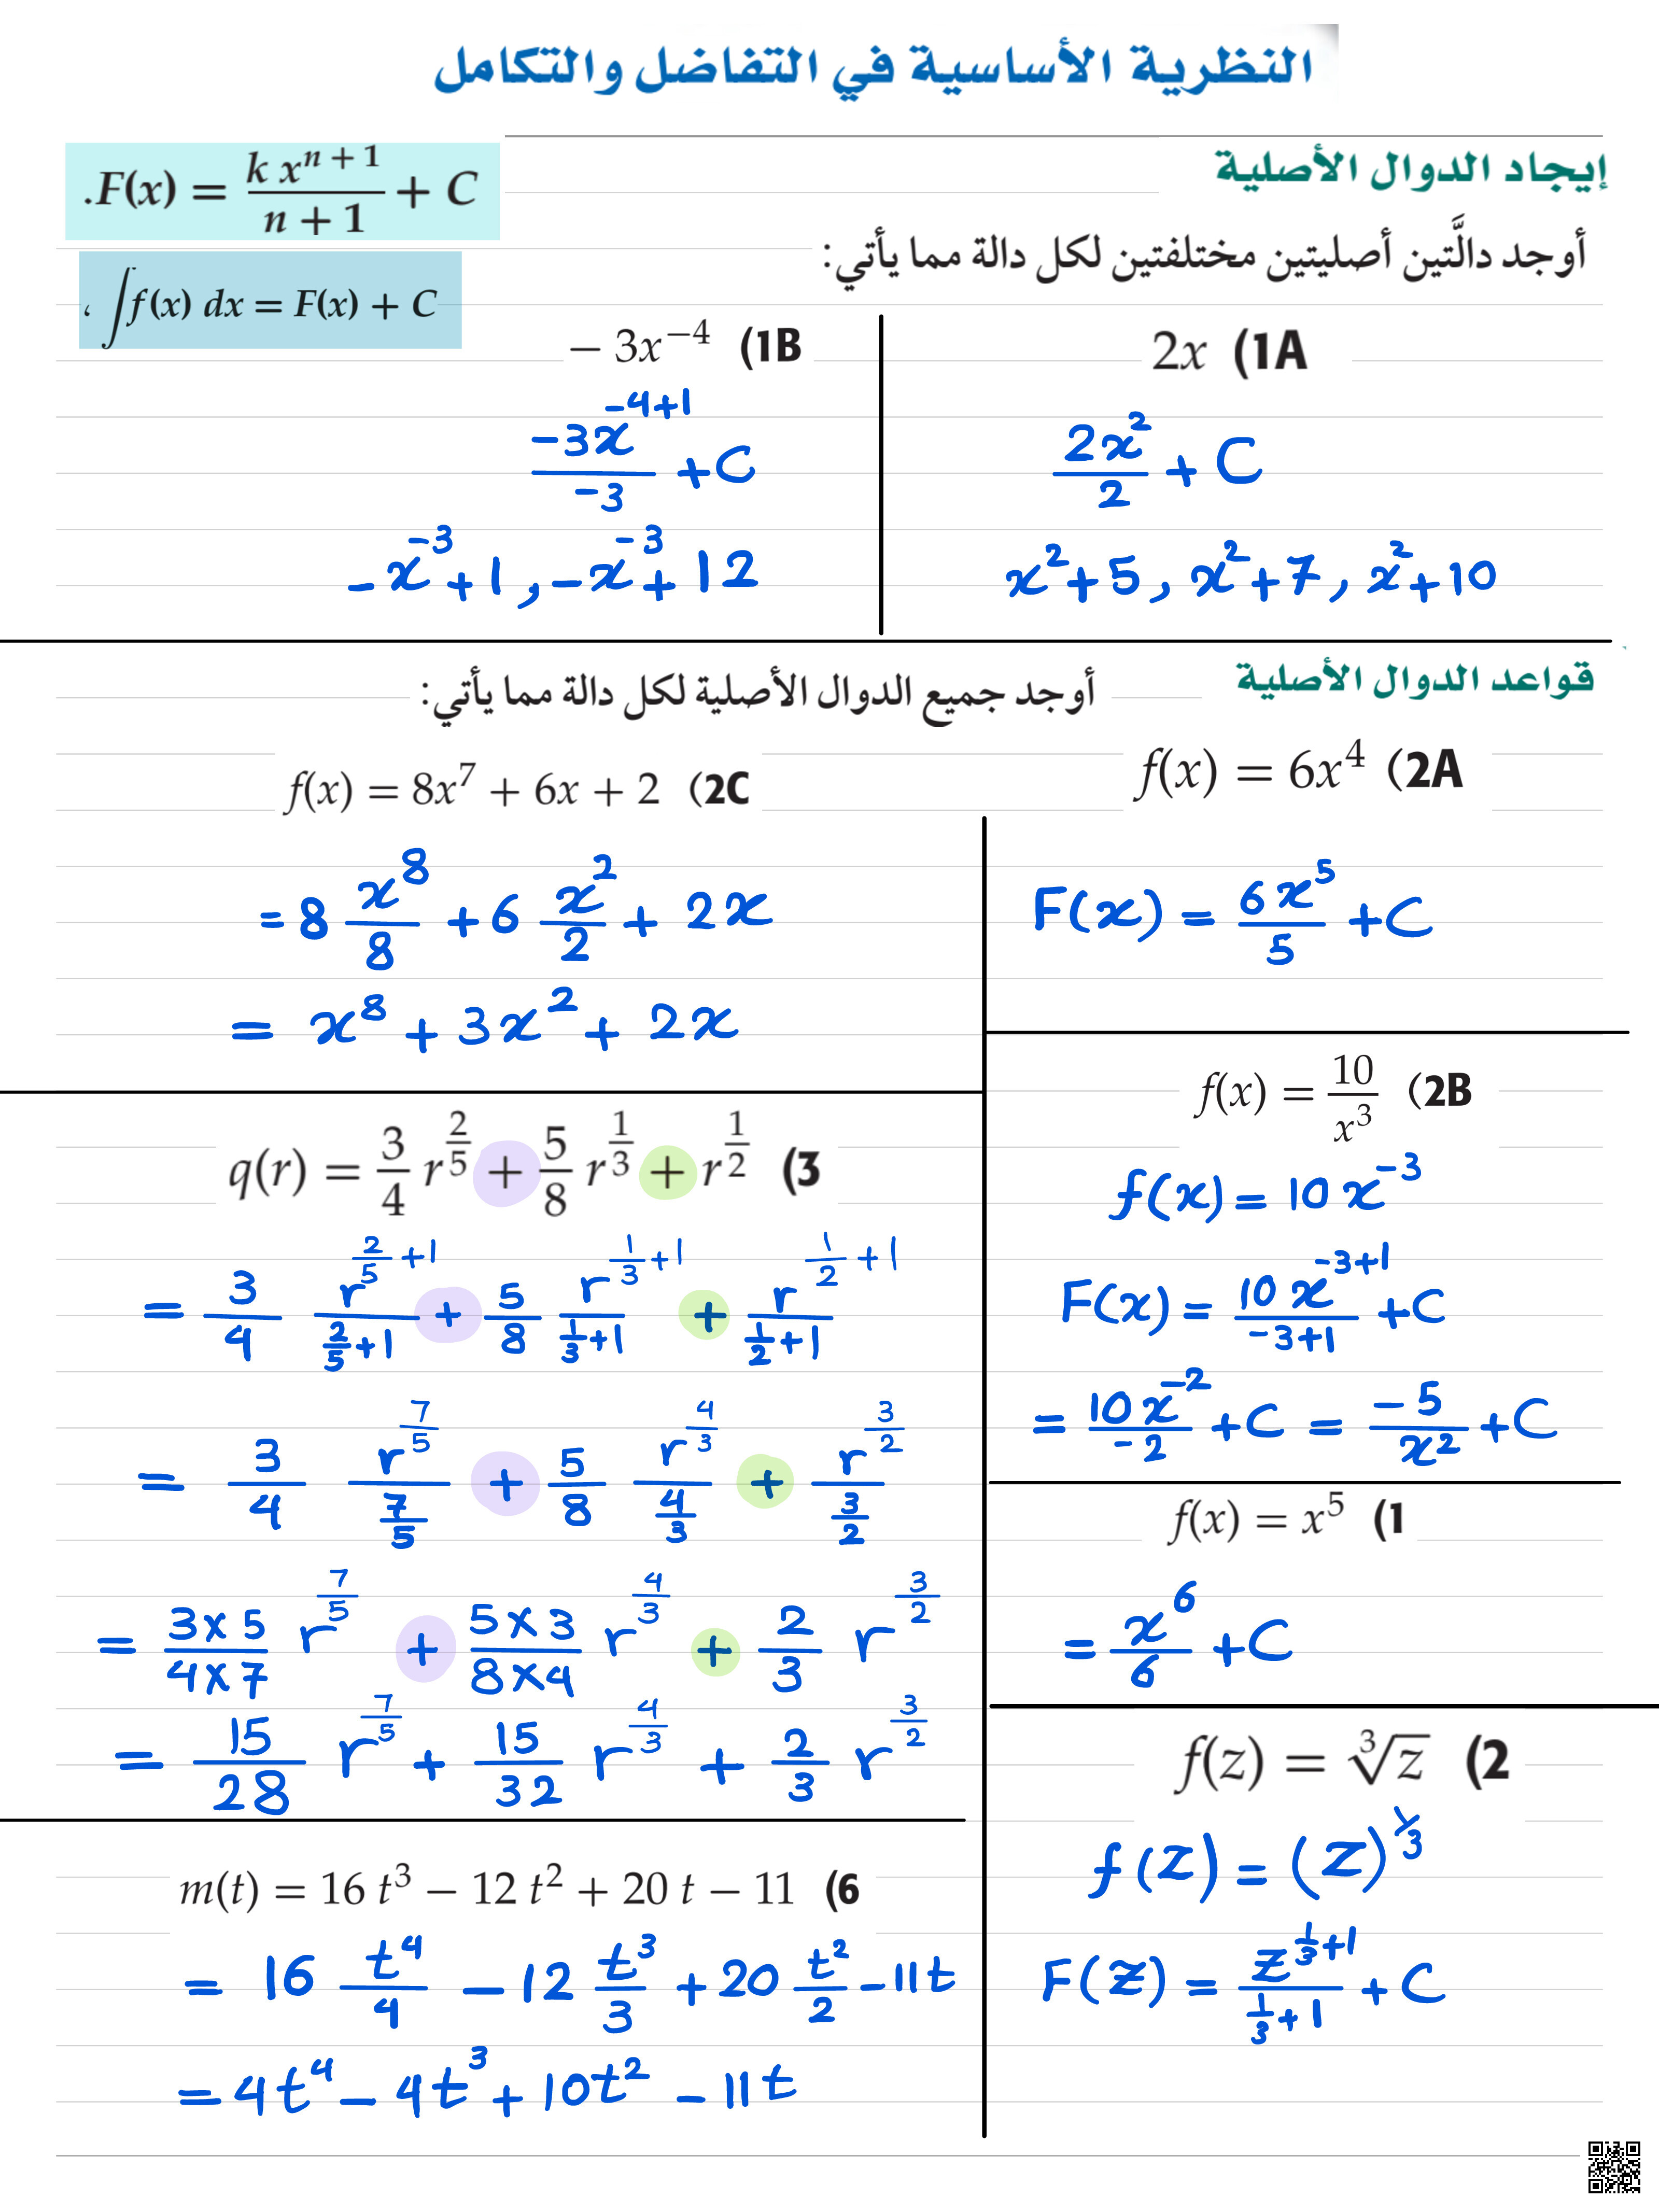 النظرية الأساسية في التفاضل والتكامل
إيجاد الدوال الأصلية
.F(x) = \frac{k x^{n+1}}{n+1} + C
أوجد دالَّتين أصليتين مختلفتين لكل دالة مما يأتي:
، ∫f(x) dx = F(x) + C
2x (1A
\frac{2x^2}{2} + C
x^2+5 , x^2+7 , x^2+10
− 3x^{−4} (1B
\frac{-3x^{-4+1}}{-3} + C
-x^{-3}+1 , -x^{-3}+12
قواعد الدوال الأصلية
أوجد جميع الدوال الأصلية لكل دالة مما يأتي:
f(x) = 6x^4 (2A
F(x) = \frac{6x^5}{5} + C
f(x) = \frac{10}{x^3} (2B
f(x) = 10 x^{-3}
F(x) = \frac{10 x^{-3+1}}{-3+1} + C
= \frac{10x^{-2}}{-2} + C = \frac{-5}{x^2} + C
f(x) = x^5 (1
= \frac{x^6}{6} + C
f(z) = \sqrt[3]{z} (2
f(z) = (z)^{1/3}
F(z) = \frac{z^{\frac{1}{3}+1}}{\frac{1}{3}+1} + C
f(x) = 8x^7 + 6x + 2 (2C
= 8 \frac{x^8}{8} + 6 \frac{x^2}{2} + 2x
= x^8 + 3x^2 + 2x
q(r) = \frac{3}{4} r^{\frac{2}{5}} + \frac{5}{8} r^{\frac{1}{3}} + r^{\frac{1}{2}} (3
= \frac{3}{4} \frac{r^{\frac{2}{5}+1}}{\frac{2}{5}+1} + \frac{5}{8} \frac{r^{\frac{1}{3}+1}}{\frac{1}{3}+1} + \frac{r^{\frac{1}{2}+1}}{\frac{1}{2}+1}
= \frac{3}{4} \frac{r^{\frac{7}{5}}}{\frac{7}{5}} + \frac{5}{8} \frac{r^{\frac{4}{3}}}{\frac{4}{3}} + \frac{r^{\frac{3}{2}}}{\frac{3}{2}}
= \frac{3×5}{4×7} r^{\frac{7}{5}} + \frac{5×3}{8×4} r^{\frac{4}{3}} + \frac{2}{3} r^{\frac{3}{2}}
= \frac{15}{28} r^{\frac{7}{5}} + \frac{15}{32} r^{\frac{4}{3}} + \frac{2}{3} r^{\frac{3}{2}}
m(t) = 16 t^3 − 12 t^2 + 20 t − 11 (6
= 16 \frac{t^4}{4} - 12 \frac{t^3}{3} + 20 \frac{t^2}{2} - 11t
= 4t^4 - 4t^3 + 10t^2 - 11t